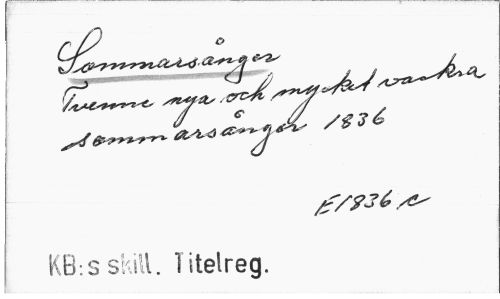 Sommarsånger
Tvenne nya och mycket vackra
sommarsånger 1836
E1836 c
KB:s skill. Titelreg.